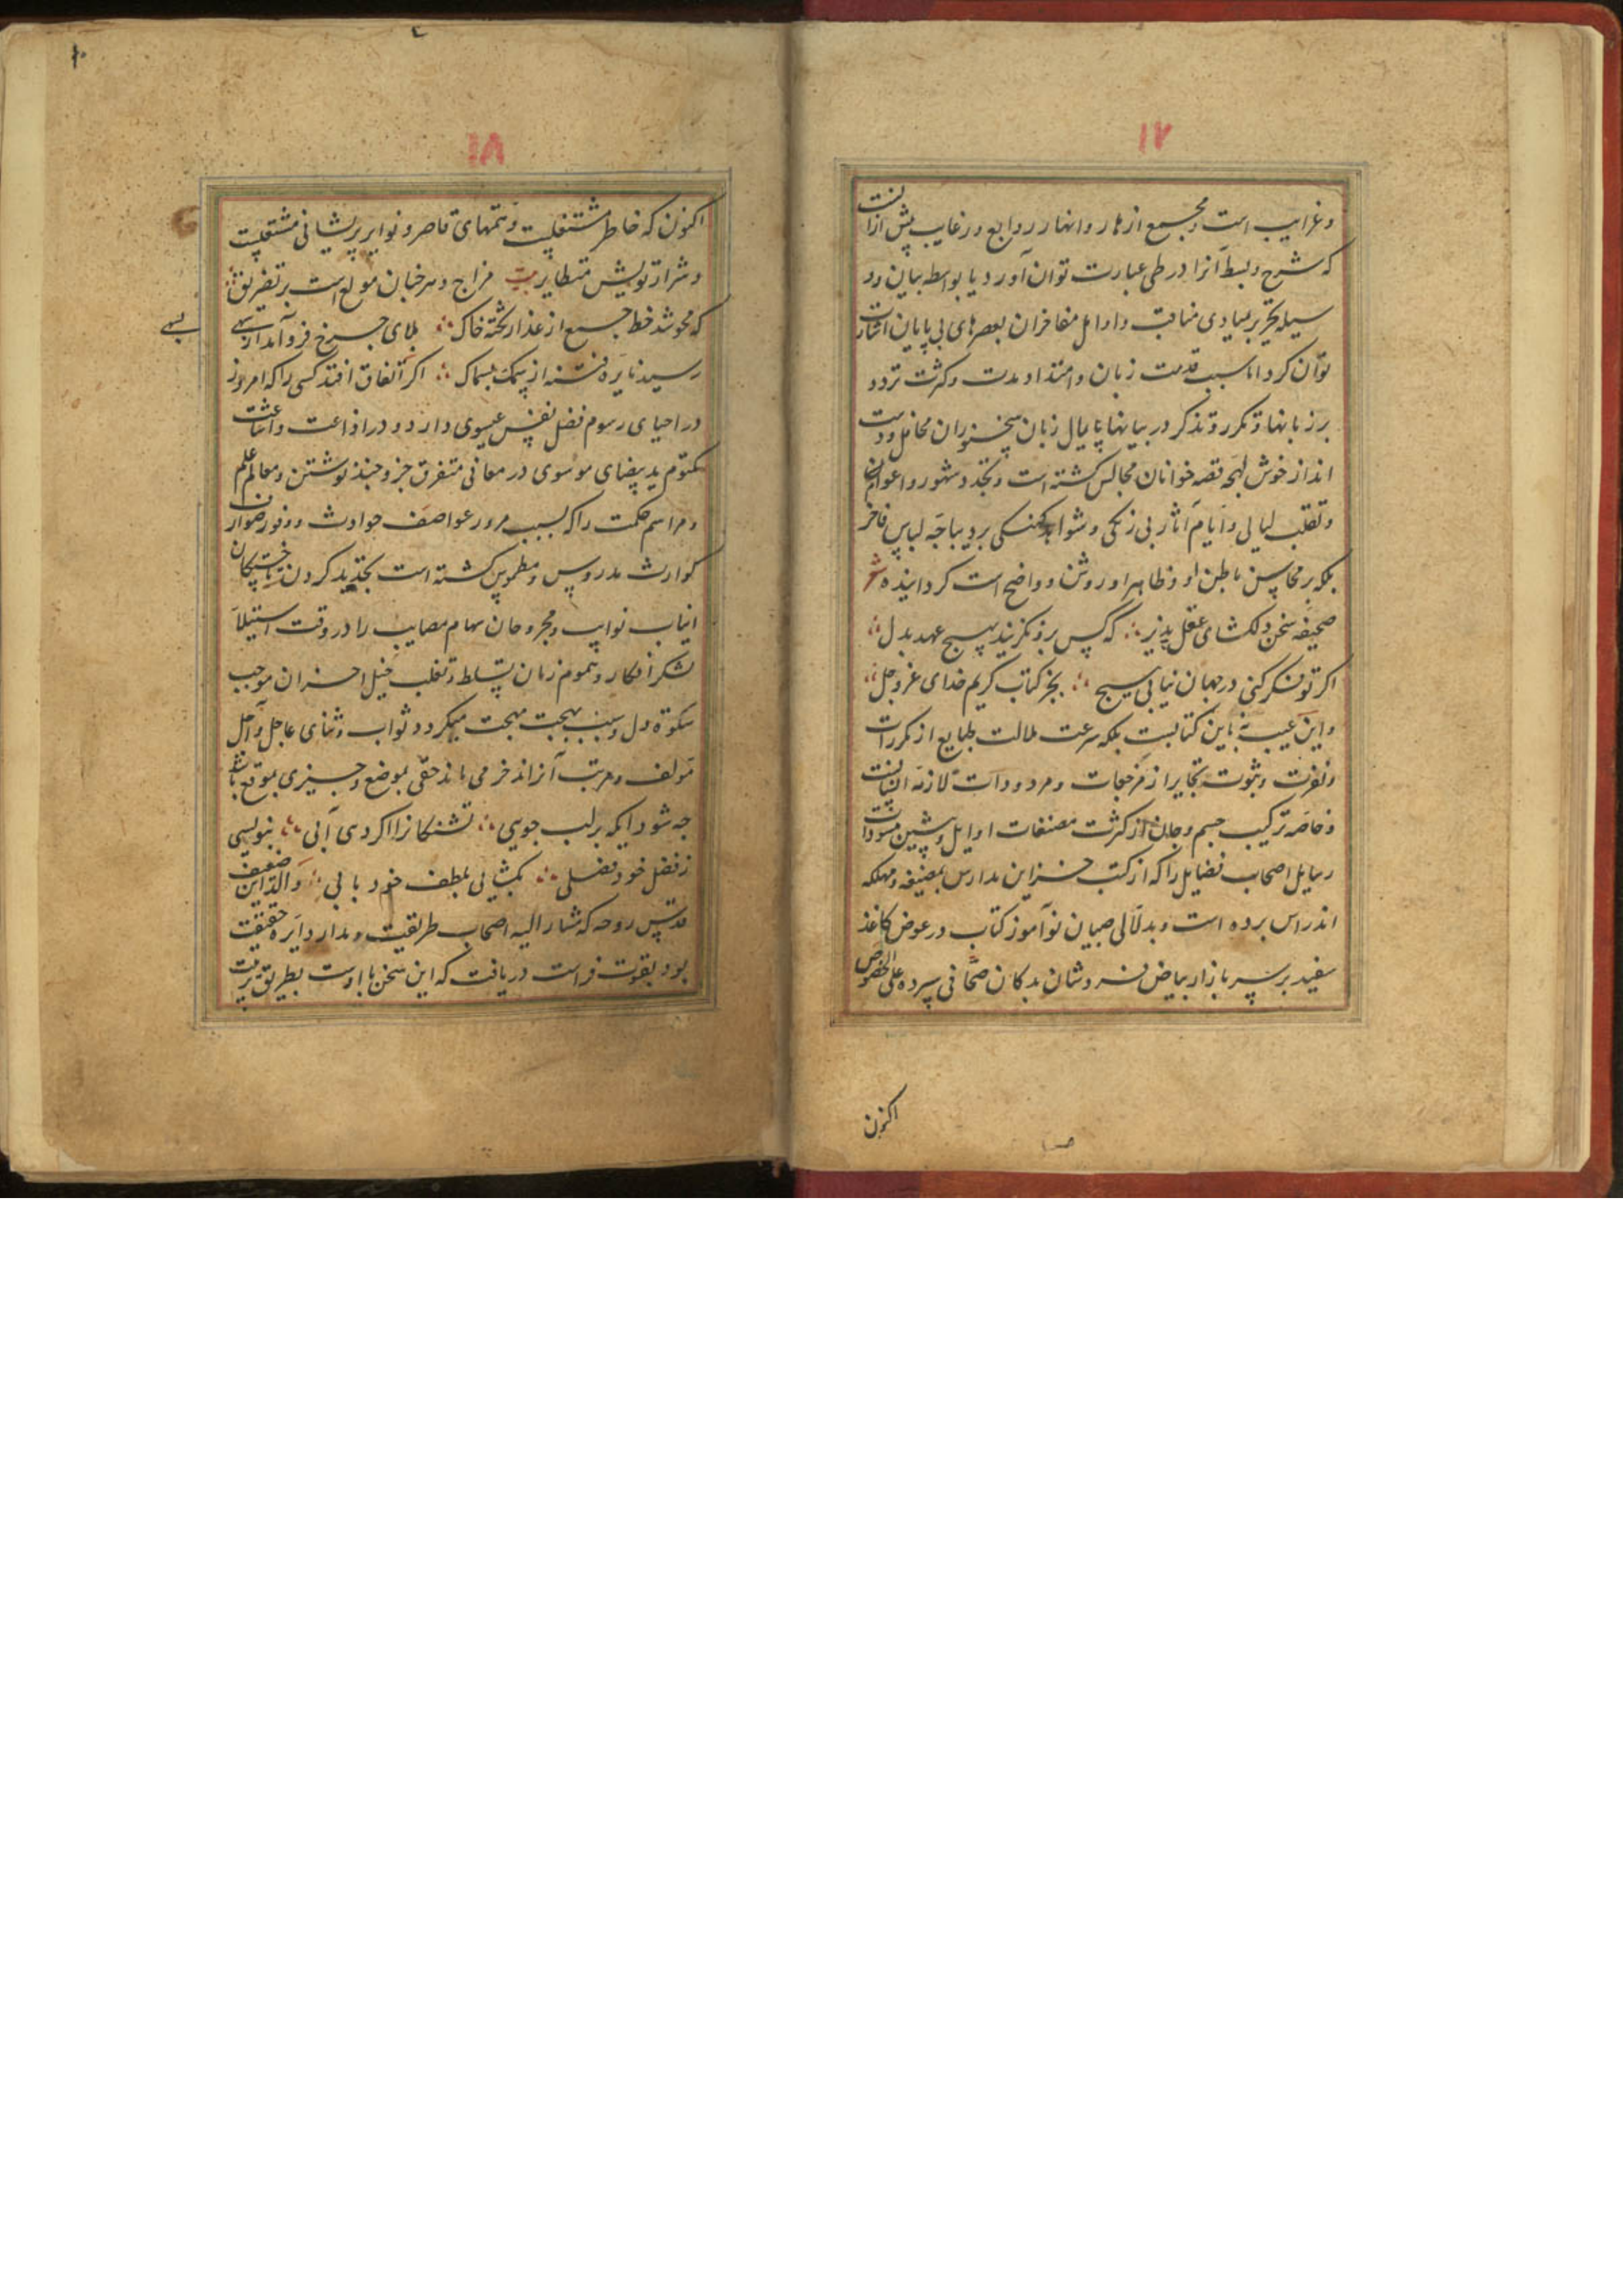 ۱۷
و غرایب است و مجمع ازهار و انهار روایع و رغایب پیش ازانست
که شرح و بسط آنرا در طی عبارت توان آورد یا بواسطه بیان و
سیله تحریر مبادی مناقب و اوایل مفاخران بعصرهای بی پایان اثبات
توان کرد اما سبب قدمت زبان و امتداد مدت و کثرت تردد
بر زبانها و تکرر و تذکر در بیانها پایمال زبان سخنوران محافل و دست
انداز خوش لهجه قصه خوانان مجالس گشته است و تجدد شهور و اعوام
و تقلب لیالی و ایام آثار بی رنگی و شواهد کهنگی بر دیباجه لباس فاخر
بلکه بر محاسن باطن او و ظاهر او روشن و واضح است گردانیده شعر
صحیفه سخن دلکشای عقل پذیر که کس برو نگزیند بهیچ عهد بدل
اگر تو فکر کنی در جهان نیابی هیچ بجز کتاب کریم خدای عز و جل
و این عیب نه باین کتابست بلکه سرعت ملالت طبایع از مکررات
و نفرت و ثبوت تجایر از مرجعات و مردودات لازمه انسانست
و خاصه ترکیب جسم و جان از کثرت مصنفات اوایل و پیشین مسودات
رسایل اصحاب فضایل را که از کتب خزاین مدارس بمضیعه و مهلکه
اندراس برده است و بدلالی صبیان نوآموز کتاب در عوض کاغذ
سفید بر سر بازار بیاض فروشان بدکان صحافی سپرده علی الخصوص
اکنون
۱۸
اکنون که خاطر مشتغلست و همتهای قاصر و نوایر پریشانی مشتعلست
و شرار تشویش متطایر بیت مزاج دهر خبان مولع است بر تفریق
که محو شد خط جمع از عذار تخته خاک بلای چرخ فرو آمد از سهی
رسید نایره فتنه از سمک بسماک اگر اتفاق افتد کسی را که امروز
در احیای رسوم فضل نفس عیسوی دارد و در اذاعت و اشاعت
مکتوم ید بیضای موسوی در معانی متفرق جز وجند نوشتن و معالم علم
و مراسم حکمت را که بسبب مرور عواصف حوادث و وفور ضوار
کوارث مدروس و مطموس گشته است تجدید کردن تا خستگان
انیاب نوایب و مجروحان سهام مصایب را در وقت استیلا
لشکر افکار و هموم زمان تسلط و تغلب خیل احزان موجب
سکوة دل و سبب بهجت مهجت میگردد ثواب و ثنای عاجل و آجل
مولف و مرتب آنرا مدخر می ماند حقی بموضع و چیزی بموقع باشد
چه شود ایکه بر لب جویی تشنگانرا اگر دهی آبی بنویسی
ز فضل خود فضلی بگشایی بلطف خود بابی والد این ضعیف
قدس روحه که مشار الیه اصحاب طریقت و مدار دایره حقیقت
بود بقوت فراست دریافت که این سخن با اوست بطریق تربیت